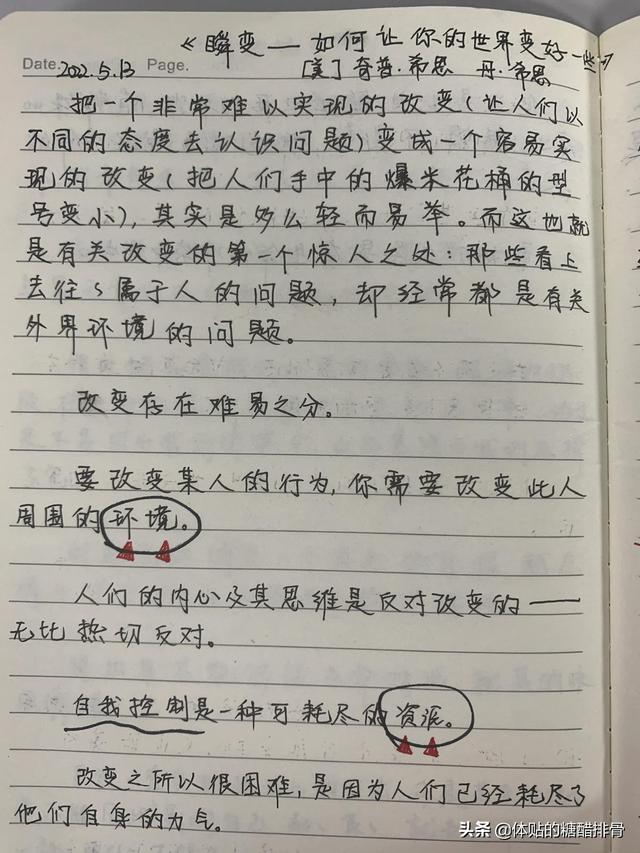 《瞬变——如何让你的世界变好一些》
Date. 2022.5.13 Page. [美]奇普·希思 丹·希思
把一个非常难以实现的改变(让人们以
不同的态度去认识问题)变成一个容易实
现的改变(把人们手中的爆米花桶的型
号变小),其实是多么轻而易举。而这也就
是有关改变的第一个惊人之处:那些看上
去往往属于人的问题,却经常都是有关
外界环境的问题。
改变存在难易之分。
要改变某人的行为,你需要改变此人
周围的环境。
人们的内心及其思维是反对改变的——
无比热切反对。
自我控制是一种可耗尽的资源。
改变之所以很困难,是因为人们已经耗尽了
他们自身的力气。
头条 @体贴的糖醋排骨